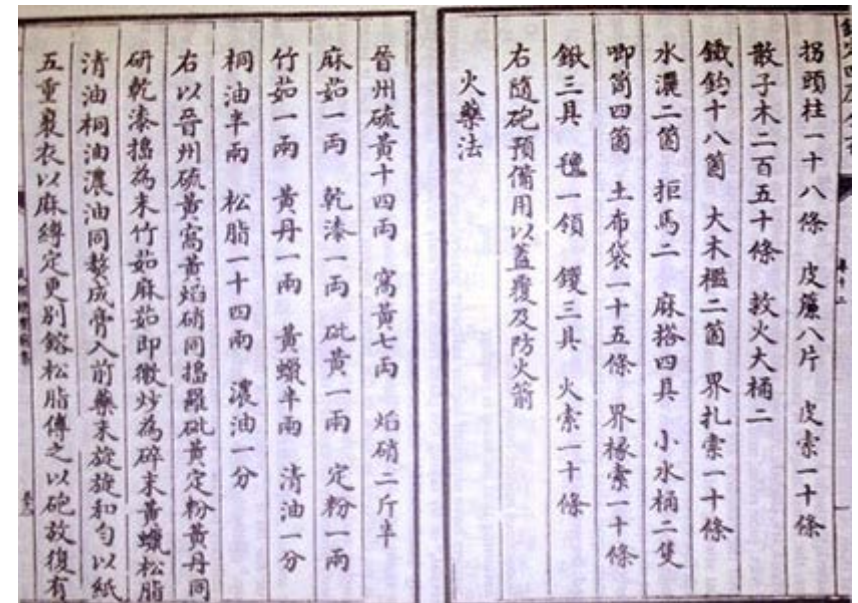 拐頭柱一十八條 皮簾八片 皮索一十條
散子木二百五十條 救火大桶二
鐵鈎十八箇 大木檻二箇 界扎索一十條
水濃二箇 拒馬二 麻搭四具 小水桶二隻
唧筒四箇 土布袋一十五條 界椽索一十條
鍬三具 氊一領 钁三具 火索一十條
右隨砲預備用以蓋覆及防火箭
火藥法
晉州硫黃十四兩 窩黃七兩 焰硝二斤半
麻茹一兩 乾漆一兩 砒黃一兩 定粉一兩
竹茹一兩 黃丹一兩 黃蠟半兩 清油一分
桐油半兩 松脂一十四兩 濃油一分
右以晉州硫黃窩黃焰硝同搗羅砒黃定粉黃丹同
研乾漆搗為末竹茹麻茹即微炒為碎末黃蠟松脂
清油桐油濃油同熬成膏入前藥末旋旋和勻以紙
五重裹衣以麻縳定更別鎔松脂傅之以砲放復有